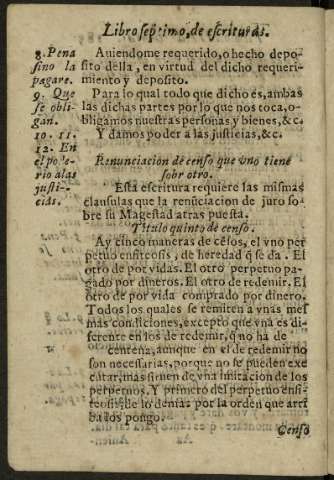 Libro septimo, de escrituras.
8. Pena
sino la
pagare.
9. Que
se obli-
gan.
10. 11.
12. En
el pode-
rio a las
justi-
cias.
Auiendome requerido, o hecho depo-
sito della, en virtud del dicho requeri-
miento y deposito.
Para lo qual todo que dicho es, ambas
las dichas partes por lo que nos toca, o-
bligamos nuestras personas y bienes, &c.
Y damos poder a las justicias, &c.
Renunciacion de censo que vno tiene
sobr otro.
Esta escritura requiere las mismas
clausulas que la renũciacion de juro so-
bre su Magestad atras puesta.
Titulo quinto de censo.
Ay cinco maneras de cẽsos, el vno per
petuo enfiteosis, de heredad q̃ se da. El
otro de por vidas. El otro perpetuo pa-
gado por dineros. El otro de redemir. El
otro de por vida comprado por dinero.
Todos los quales se remiten a vnas mes
mas condiciones, excepto que vna es di-
ferente en los de redemir, q̃ no ha de
centena, aunque en el de redemir no
son necessarias, porque no se pueden exe
cutar, mas siruen de vna imitacion de los
perpetuos. Y primero del perpetuo enfi-
teosis, de lo demas por la orden que arri
ba los pongo.
Censo